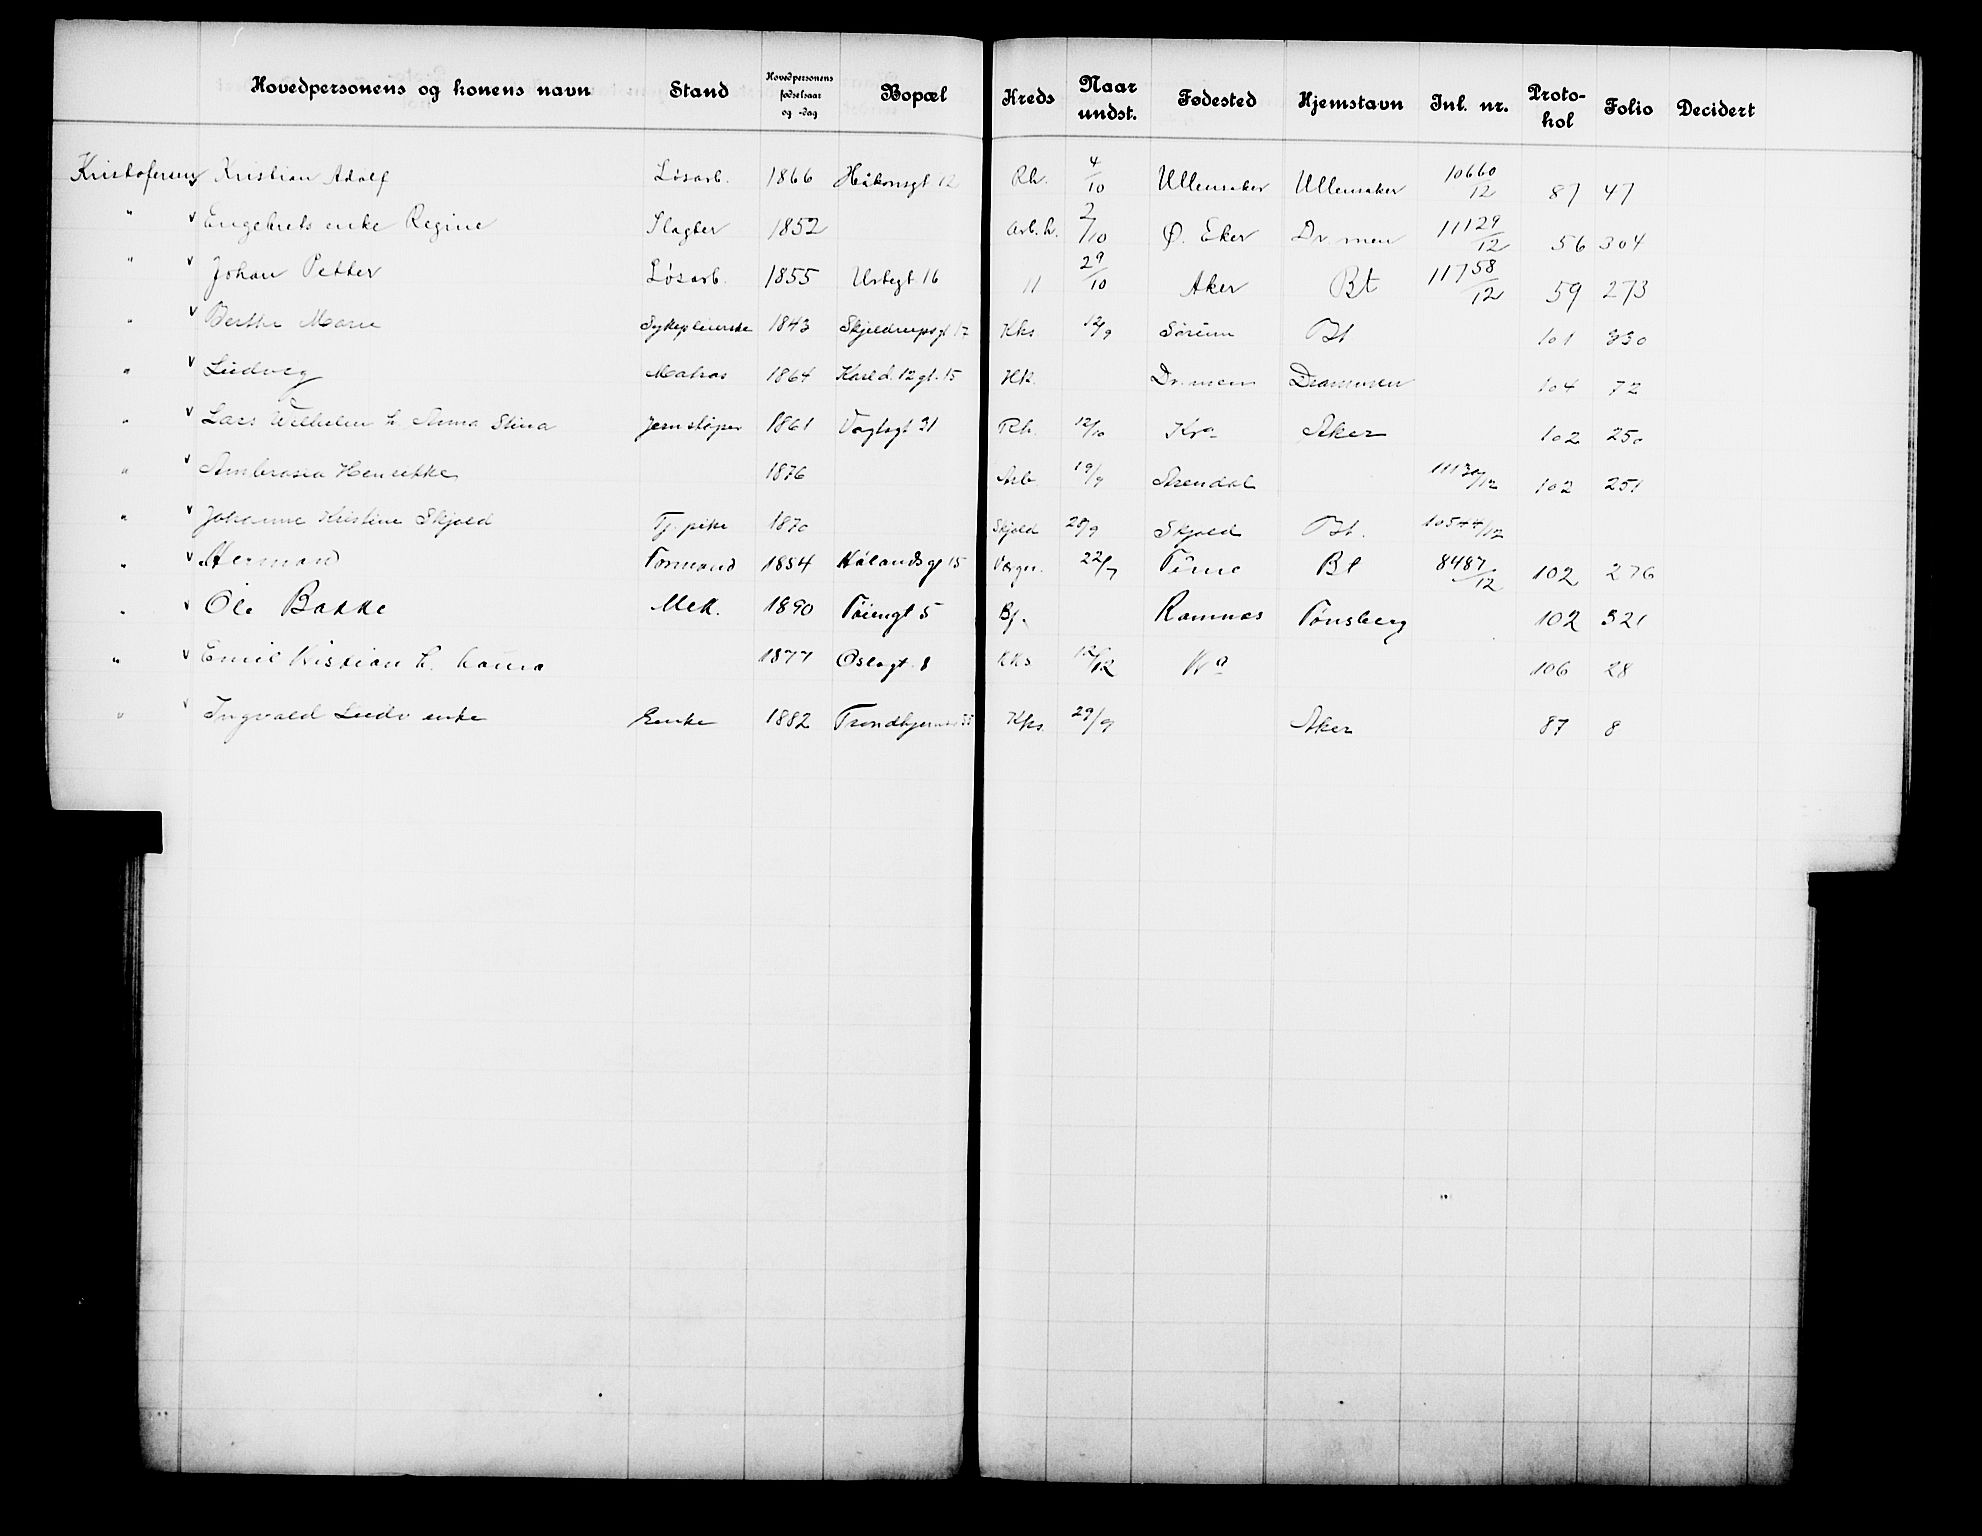 Hovedpersonens og konens navn Stand Hovedpersonens fødselsaar og -dag Bopæl Kreds Naar undst. Fødested Hjemstavn Inl. nr. Protokol Folio Decidert
Kristofersen v Kristian Adolf Løsarb. 1866 Håkonsgt 12 Rh. 4/10 Ullensaker Ullensaker 10660/12 87 47
" v Engebrets enke Regine Slagter 1852 Arb. h. 2/10 Ø. Eker Dr.men 11129/12 56 304
" v Johan Petter Løsarb. 1855 Urtegt. 16 " 29/10 Aker Bt 11758/12 59 273
" v Berthe Marie Sykepleierske 1843 Skjeldrupsgt 12 Kks 12/9 Sørum Bt 101 330
" v Ludvig Matros 1864 Karl d. 12 gt. 15 HK. Dr.men Drammen 104 72
" v Lars Wilhelm h. Anna Stina Jernstøper 1861 Vogtsgt 31 Rh. 12/10 Kra Aker 102 250
" v Ambrosia Henrikke 1876 Arb. 19/9 Arendal 11130/12 102 251
" v Johanne Kristine Skjold Tj. pike 1870 Skjold 28/9 Skjold Bt. 10544/12
" v Herman Formand 1854 Hålandsgt 15 22/7 Bt 8487/12 102 276
" v Ole Bakke Mek. 1890 Tøiengt 5 Bj. Ramnes Tønsberg 102 321
" v Emil Kristian h. Laura 1877 Oslogt. 8 KKs 12/12 Kra 106 28
" v Ingvald Ludv enke Enke 1882 Kks. 29/9 Aker 87 8